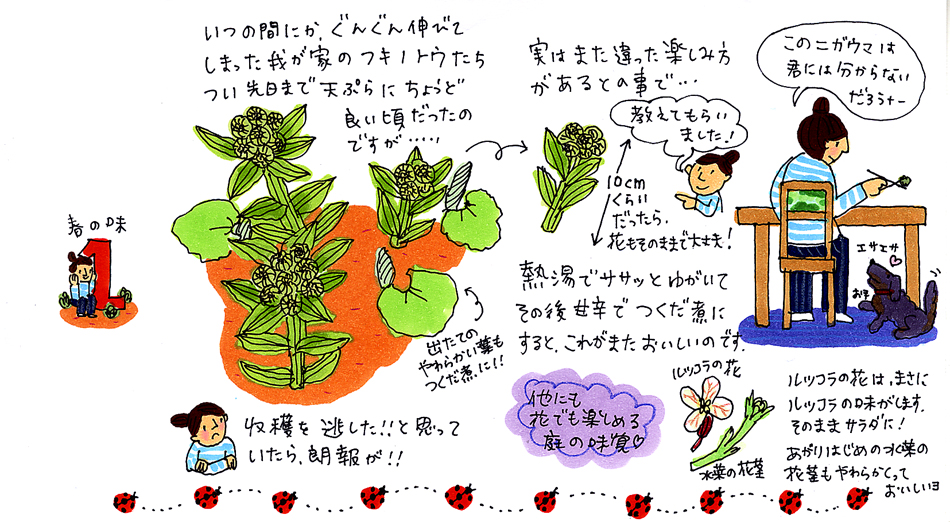 春の味
1
いつの間にか、ぐんぐん伸びて
しまった我が家のフキノトウたち
つい先日まで天ぷらにちょうど
良い頃だったの
ですが……
収穫を逃した!!と思って
いたら、朗報が!!
出たての
やわらかい葉も
つくだ煮に!!
実はまた違った楽しみ方
があるとの事で…
教えてもらい
ました!
10cm
くらい
だったら、
花もそのままで大丈夫!
熱湯でササッとゆがいて
その後甘辛でつくだ煮に
すると、これがまたおいしいのです。
このニガウマは
君には分からない
だろうナー
エサエサ
おす
他にも
花でも楽しめる
庭の味覚♡
ルッコラの花
水菜の花茎
ルッコラの花は、まさに
ルッコラの味がします。
そのままサラダに!
あがりはじめの水菜の
花茎もやわらかくって
おいしいヨ